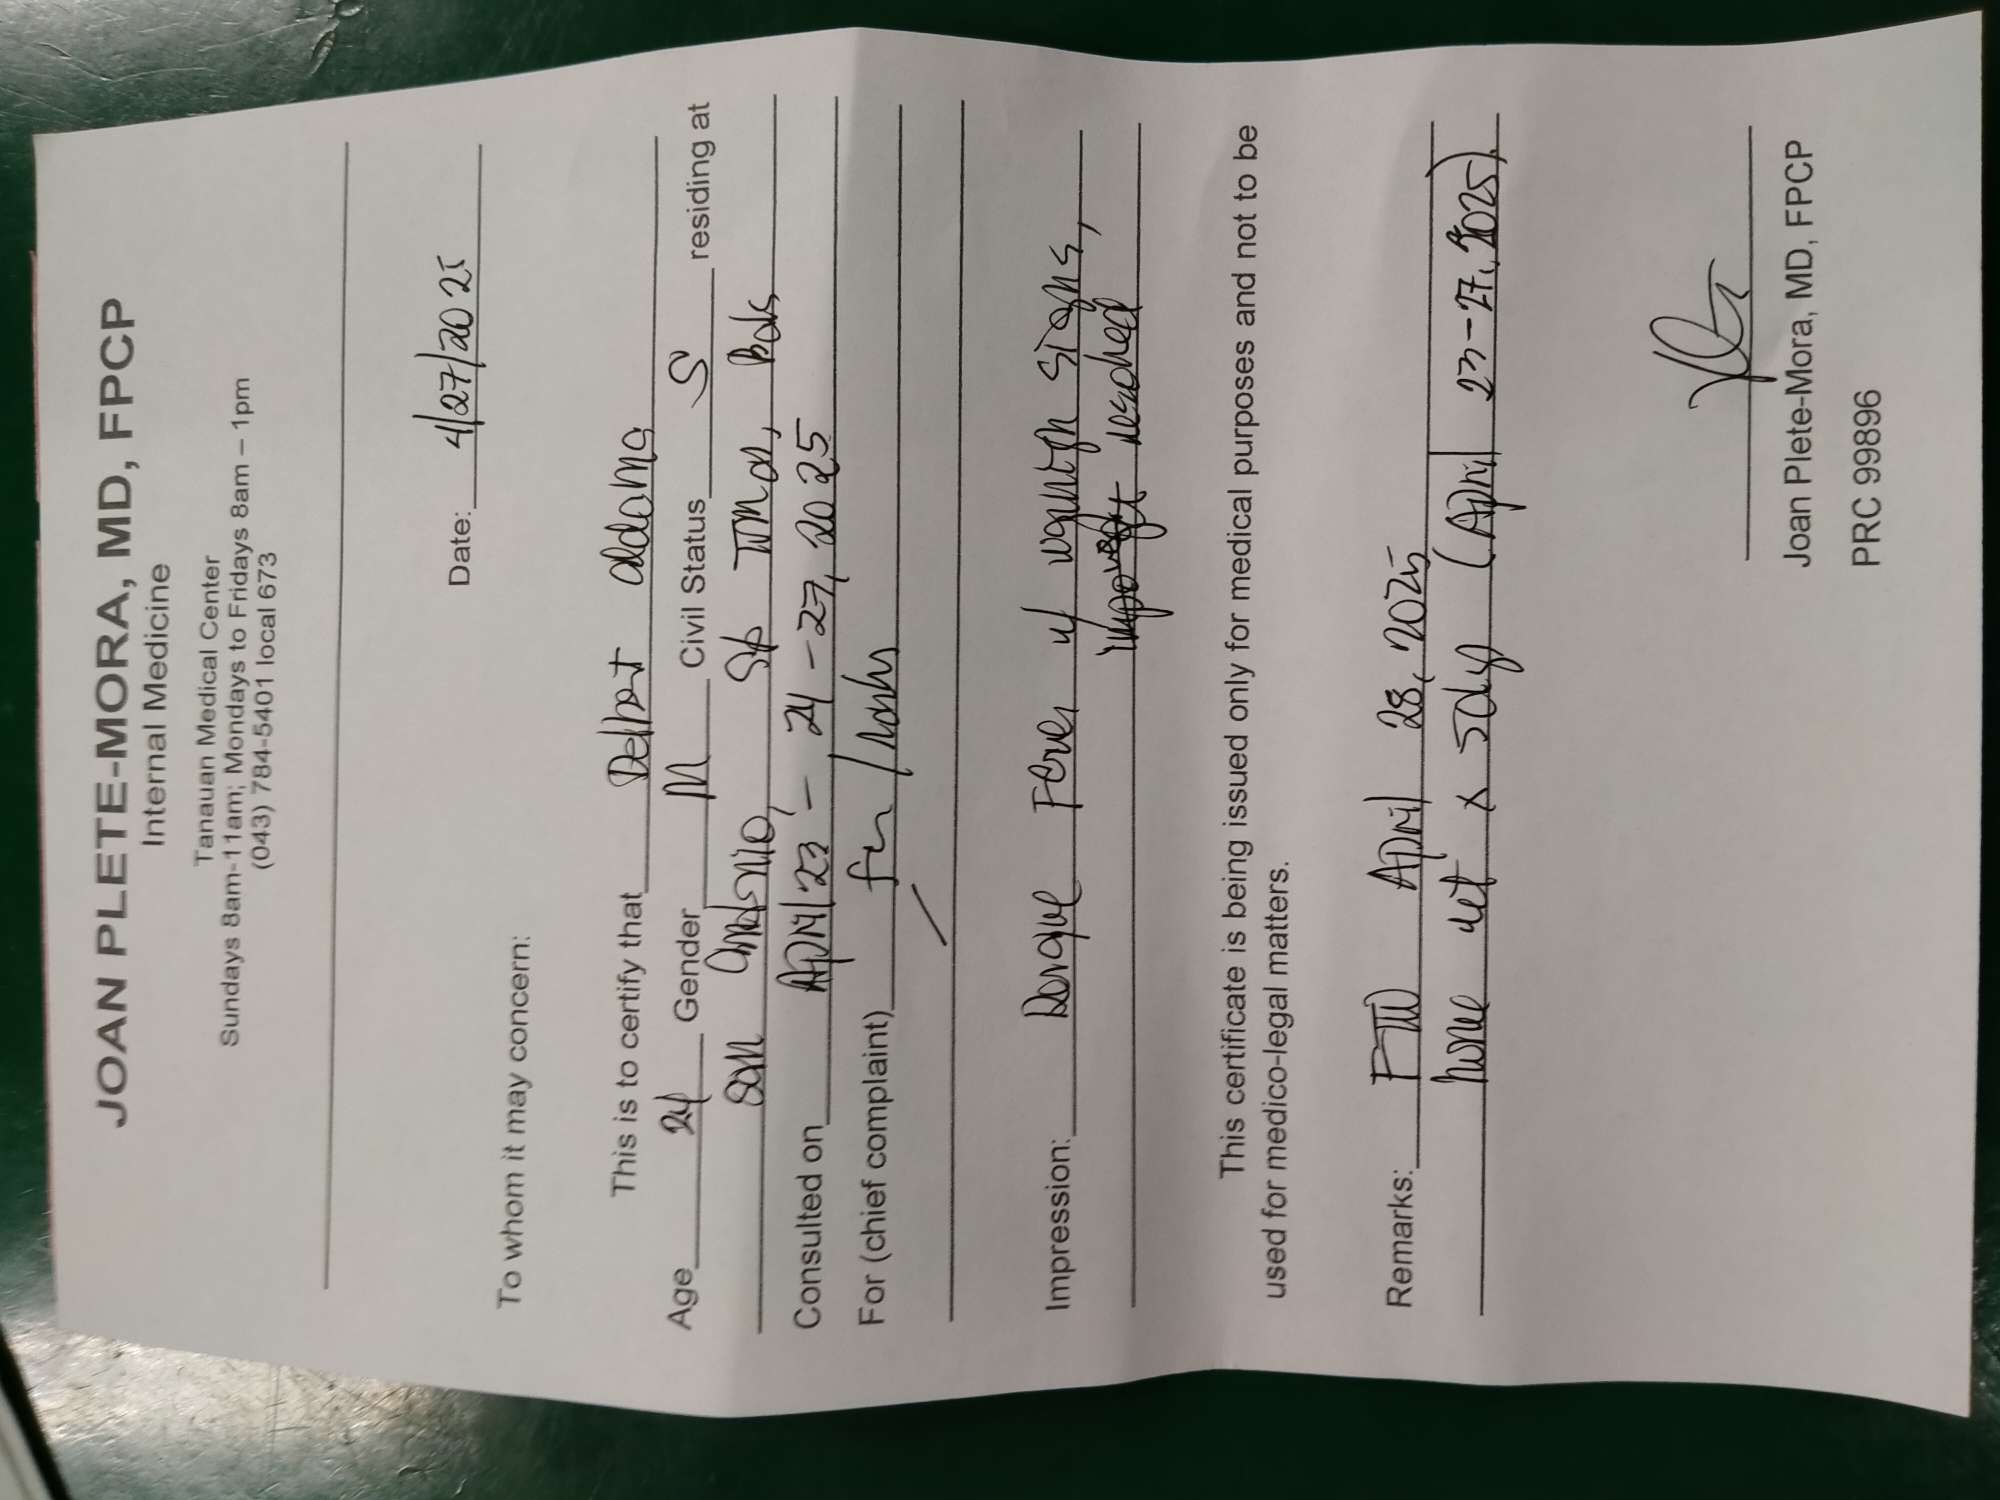 JOAN PLETE-MORA, MD, FPCP
Internal Medicine
Tanauan Medical Center
Sundays 8am-11am; Mondays to Fridays 8am – 1pm
(043) 784-5401 local 673
Date: 4/27/2025
To whom it may concern:
This is to certify that Delbert
Age 24 Gender M Civil Status S residing at
San Antonio, Sto Tomas,
Consulted on April 23 - 24 - 27, 2025
For (chief complaint)
Impression: Dengue Fever w/ warning signs,
resolved
This certificate is being issued only for medical purposes and not to be
used for medico-legal matters.
Remarks: FTW April 28, 2025
home x 5 (April 23-27, 2025).
Joan Plete-Mora, MD, FPCP
PRC 99896